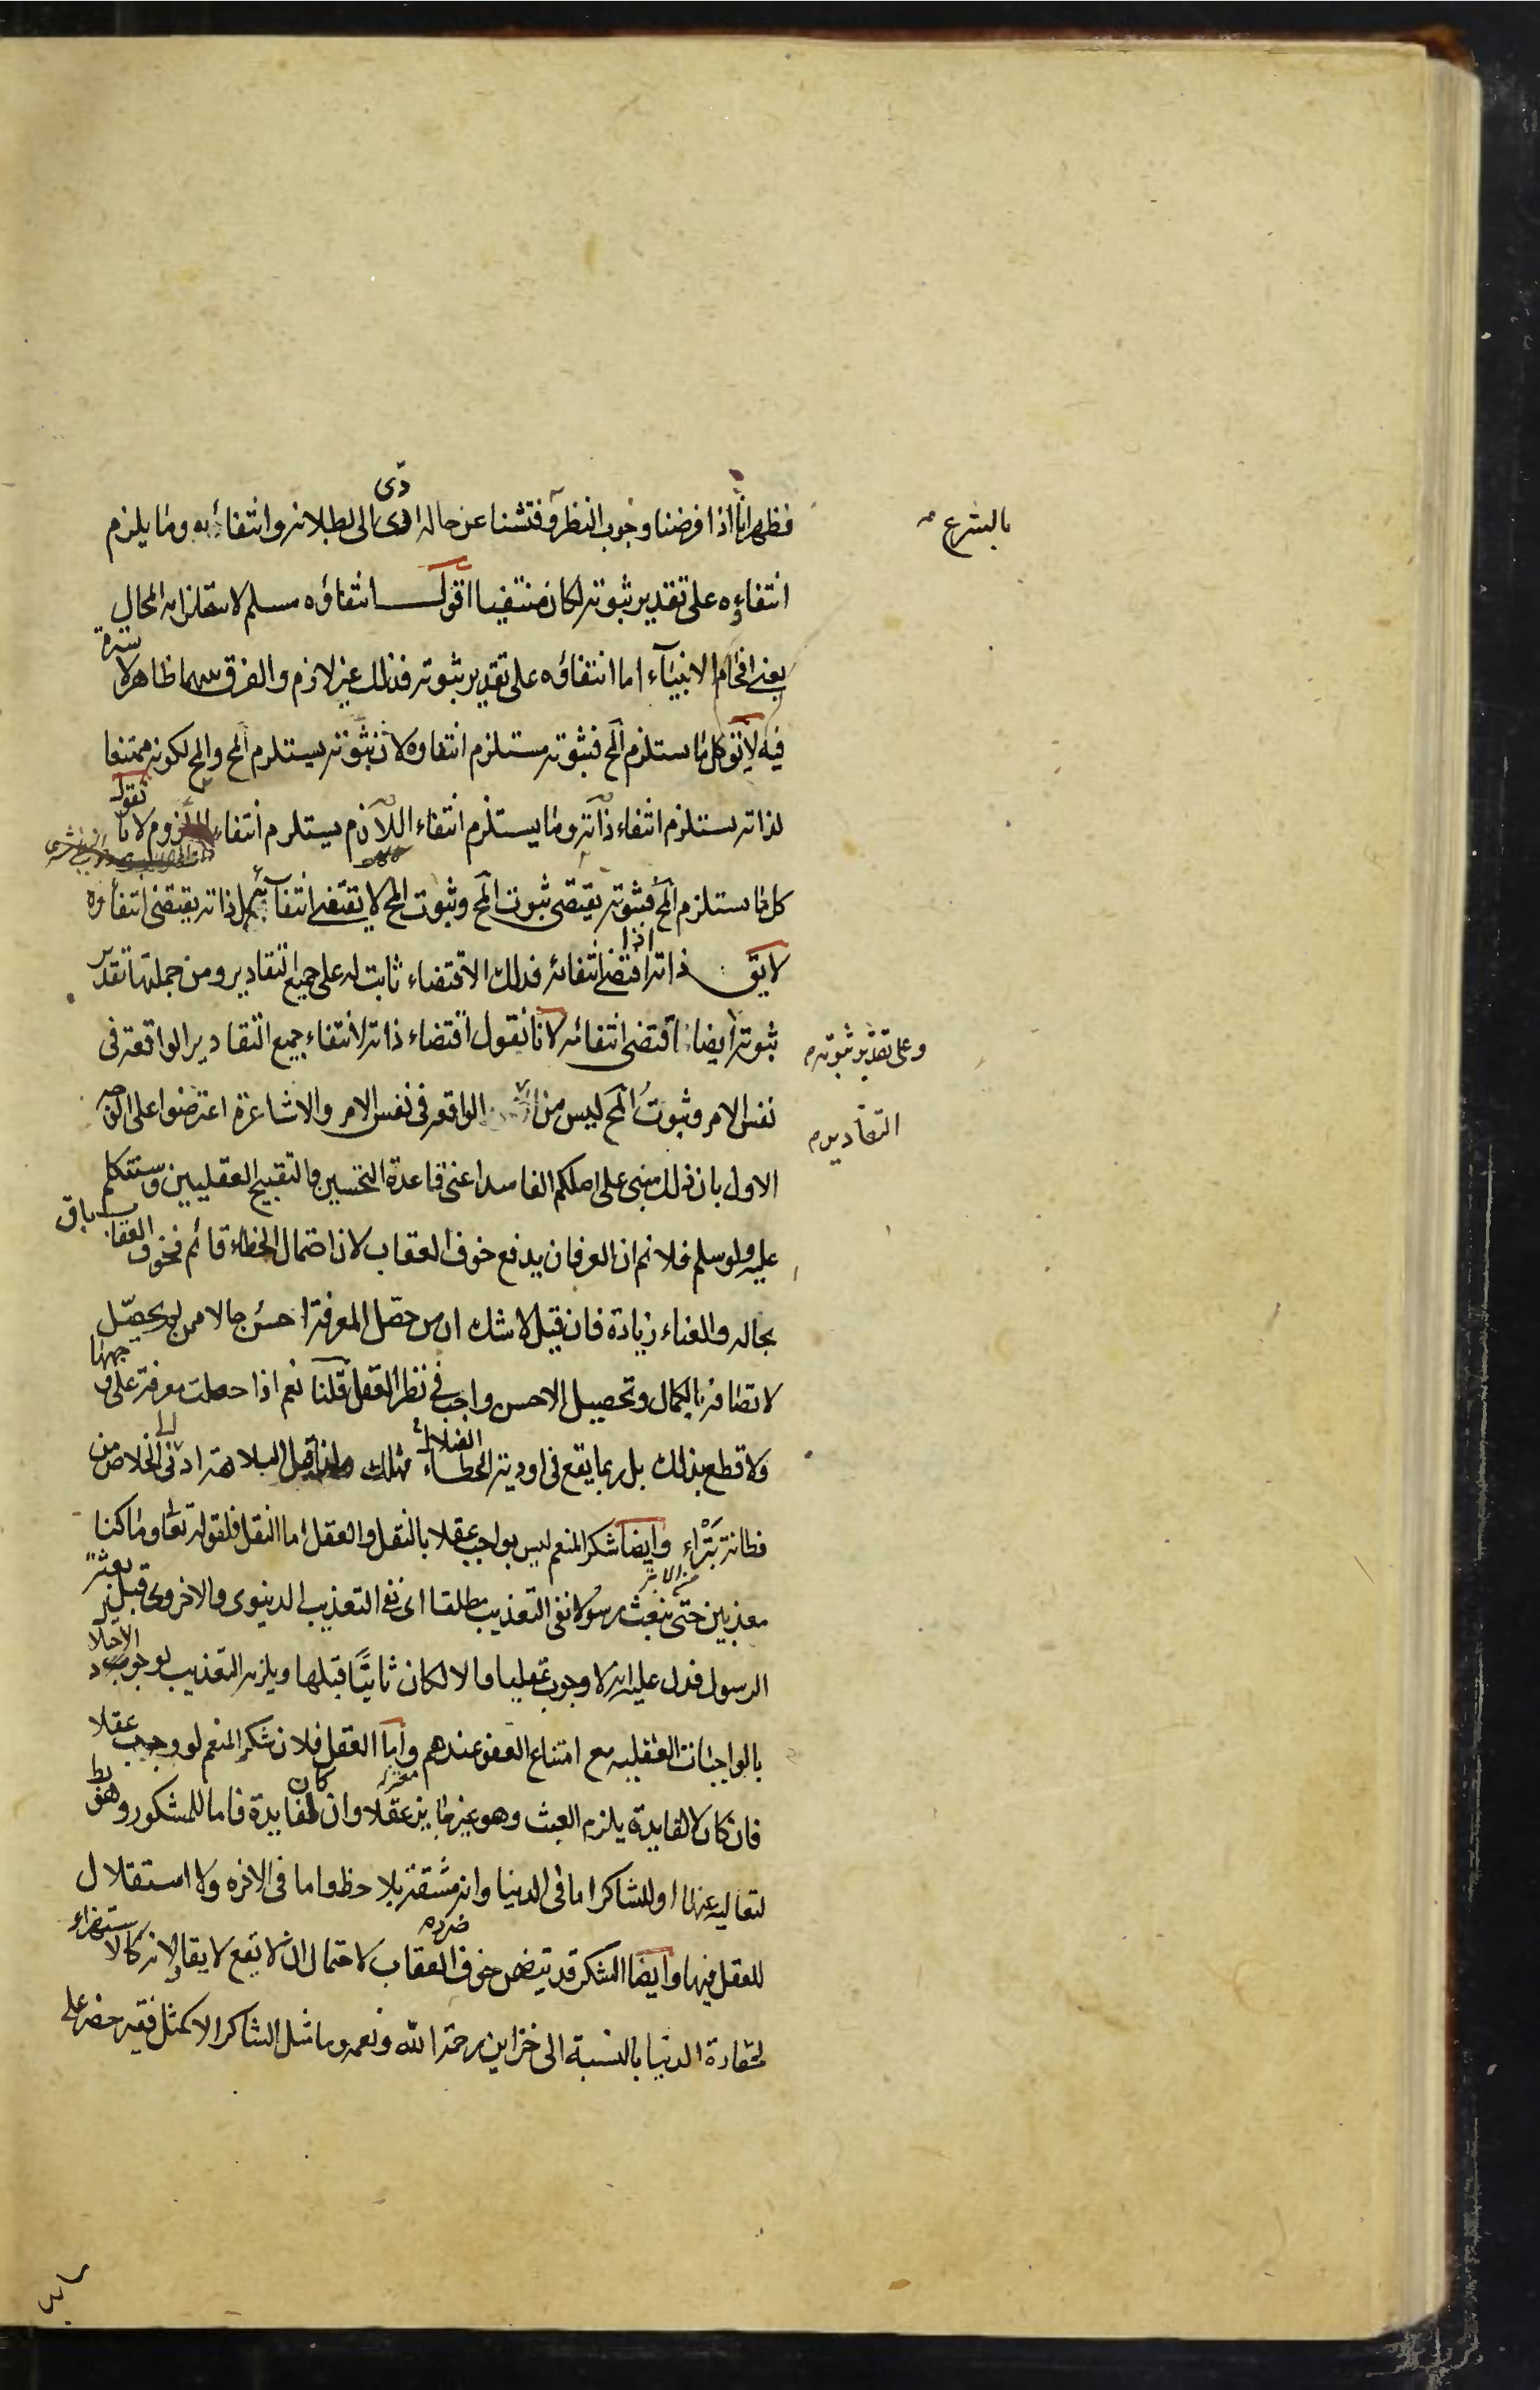 فظهر انا اذا فرضنا وجوب النظر وفتشنا عن حاله ادّى الى بطلانه وانتفائه وما يلزم
بالشرع
انتفاؤه على تقدير ثبوته لكان منتفيا اقول انتفاؤه مسلم لاستلزامه المحال
يعنى افحام الانبياء اما انتفاؤه على تقدير ثبوته فذلك غير لازم والفرق بينهما ظاهر لا سترة
فيه لا يق كل ما يستلزم المح فثبوته مستلزم انتفاوه لان ثبوته يستلزم المح والمح لكونه ممتنعا
لذاته يستلزم انتفاء ذاته وما يستلزم انتفاء اللازم يستلزم انتفاء الملزوم لانا نقول
كل ما يستلزم المح فثبوته يقتضى ثبوت المح وثبوت المح لا يقتضى انتفائه بل ذاته يقتضى انتفاؤه
لا يق ذاته اذا اقتضى انتفائه فذلك الاقتضاء ثابت له على جميع التقادير ومن جملتها تقدير
ثبوته ايضا اقتضى انتفائه لانا نقول اقتضاء ذاته لانتفاء جميع التقادير الواقعة فى
وعلى تقدير ثبوته
نفس الامر وثبوت المح ليس من الواقعه فى نفس الامر والاشاعرة اعترضوا على الوجه
التقادير
الاول بان ذلك مبنى على اصلكم الفاسد اعنى قاعدة التحسين والتقبيح العقليين وسنتكلم
عليه ولو سلم فلا نم ان العرفان يدفع خوف العقاب لان احتمال الخطاء قائم فخوف العقاب باق
بحاله والعناء زيادة فان قيل لا شك ان من حصّل المعرفة احسن حالا ممن لم يحصّل
لاتصافه بالكمال وتحصيل الاحسن واجب فى نظر العقل قلنا نعم اذا حصلت معرفة على وجهها
ولا قطع بذلك بل ربما يقع فى اودية الخطاء الضلال فهلك ولذا قيل البلاهة ادنى الى الخلاص من
فطانة بَتْراء وايضا شكر المنعم ليس بواجب عقلا بالنقل والعقل اما النقل فلقوله تعالى وما كنا
معذبين حتى نبعث رسولا نفى التعذيب مطلقا اى نفى التعذيب الدنيوى والاخروى قبل بعثة
الرسول فدل عليه انه لا وجوب عقليا والا لكان ثابتًا قبلها ويلزم التعذيب لوجوب الاخلال
بالواجبات العقليه مع امتناع العفو عندهم واما العقل فلان شكر المنعم لو وجب عقلا
فان كان لا لفايدة يلزم العبث وهو غير جايز عقلا وان كان لفايدة فاما للمشكور وهو بط
لتعاليه عنها او للشاكر اما فى الدنيا وانه مشقة بلا حظ واما فى الاخره ولا استقلال
للعقل فيها وايضا الشكر قد يتضمن خوف العقاب لاحتمال ان لا يقع لايقا ولانه كالاستهزاء
لحقارة الدنيا بالنسبة الى خزاين رحمة الله ونعمه وما مثل الشاكر الا كمثل فقير حضر على